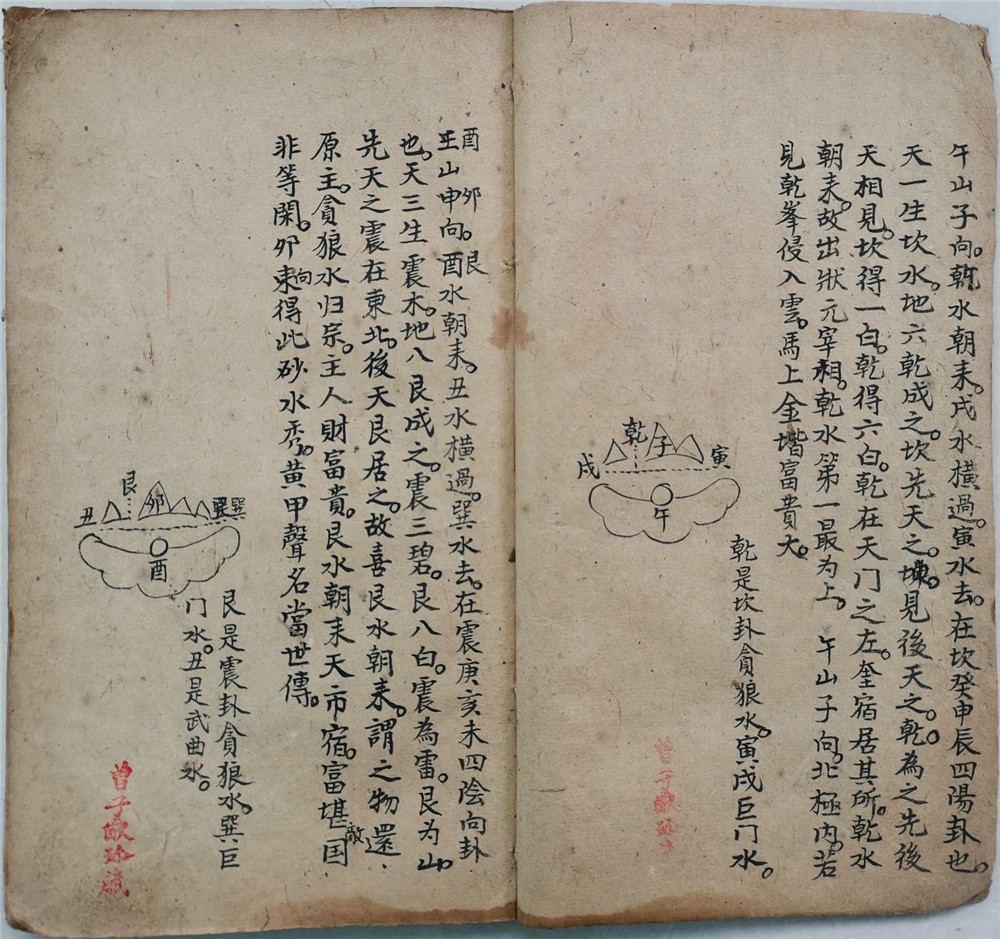 午山子向。乾水朝来。戌水橫過。寅水去。在坎癸申辰四陽卦也。
天一生坎水。地六乾成之。坎先天之。見後天之。乾為之先後
天相見。坎得一白。乾得六白。乾在天门之左。奎宿居其所。乾水
朝来。故出狀元宰相。乾水第一最为上。 午山子向。北極内。若
見乾峯侵入雲。馬上金堦富貴大。
戌 乾 子 寅
午
乾是坎卦貪狼水。寅戌巨门水。
酉 卯 艮
山申向。酉水朝来。丑水橫過。巽水去。在震庚亥未四陰向卦
也。天三生震木。地八艮成之。震三碧。艮八白。震為雷。艮为山。
先天之震在東北。後天艮居之。故喜艮水朝来。謂之物還
原主。貪狼水归宗。主人財富貴。艮水朝来天市宿。富堪敵国
非等閑。卯向東得此砂水秀。黄甲聲名當世傳。
丑 艮 卯 巽
酉
艮是震卦貪狼水。巽巨
门水。丑是武曲水。
曾子
曾子